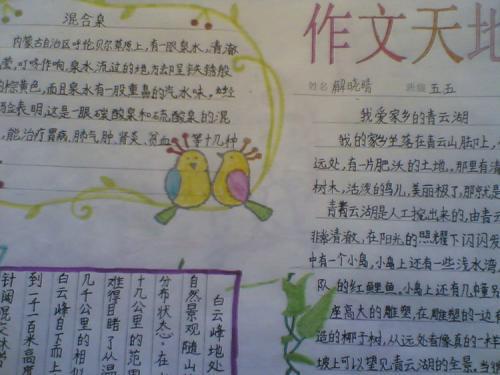 混合泉
内蒙古自治区呼伦贝尔草原上,有一眼泉水,清澈
莹,叮咚作响,泉水流过的地方却呈铁锈般
的棕黄色,而且泉水有一股重鼻的汽水味。
表明,这是一眼碳酸泉和硫酸泉的混
,能治疗胃病、肺气肿、肾炎、贫血 等十几种
作文天地
姓名 解晓晴 班级 五五
我爱家乡的青云湖
我的家乡坐落在青云山脚下,
远处,有一片肥沃的土地,那里有清
树木,活泼的鸟儿,美丽极了,那就是
青云湖是人工挖出来的,由青云
非常清澈,在阳光的照耀下闪闪发
中有一个小岛,小岛上还有一些浅水湾
队的红鲤鱼。小岛上还有几幢
座高大的雕塑,在雕塑的一边有
造的椰子树,从远处看像真的一样
坡上可以望见青云湖的全景,当
白云峰地处
自然景观随山
分布状态。在
十九公里的范围
难得目睹了从温
几千公里的相似
白云峰自下而上
到一千一百米高度
针阔混交林带